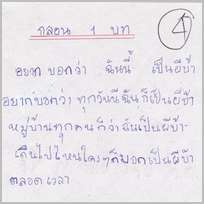 กลอน 1 บท
4
อยากบอกว่า ฉันนี้ เป็นผีบ้า
อยากบอกว่า ทุกวันนี้ฉันก็เป็นผีบ้า
หมู่บ้านทุกคนคิดว่าฉันเป็นผีบ้า
เดินไปไหนใครๆก็บอกเป็นผีบ้า
ตลอดเวลา